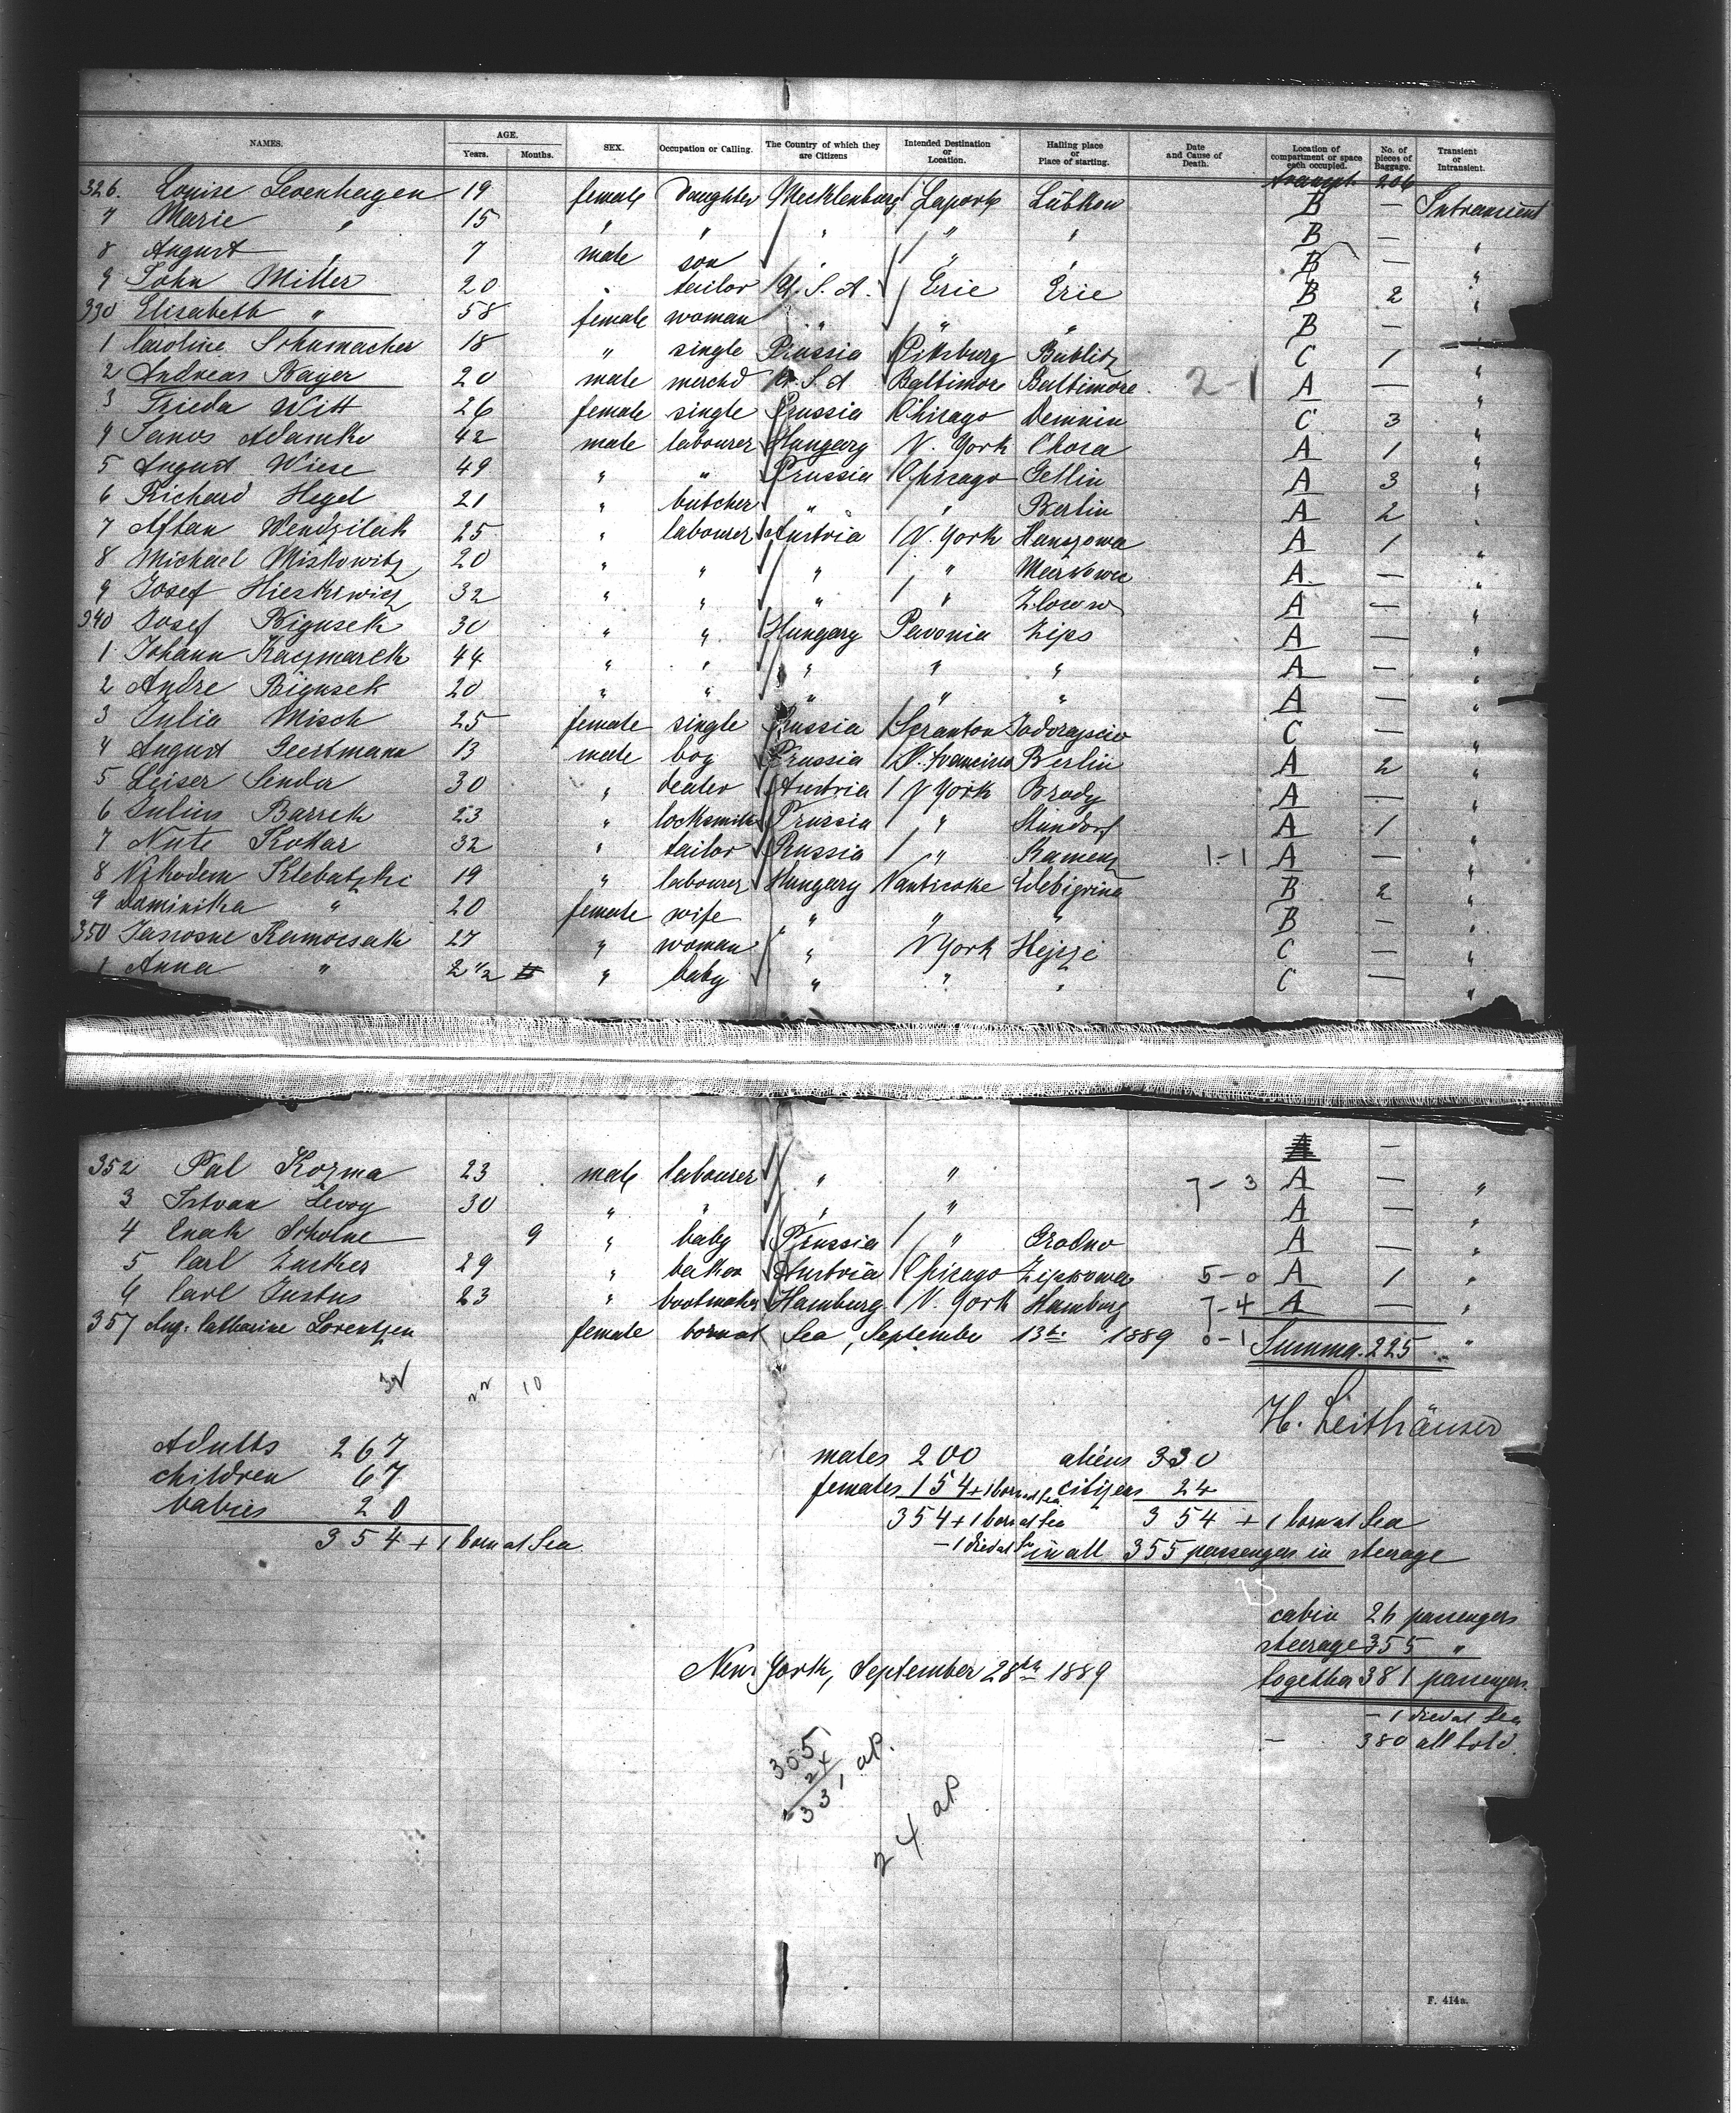 NAMES. AGE. Years. Months. SEX. Occupation or Calling. The Country of which they are Citizens Intended Destination or Location. Hailing place or Place of starting. Date and Cause of Death. Location of compartment or space each occupied. No. of pieces of Baggage. Transient or Intransient.
transpt. 206
326. Louise Levenhagen 19 female daughter Mecklenburg Laporte Lübkow B — Intransient
7 Marie " 15 " " " " " B — "
8 August " 7 male son " " " B — "
9 John Miller 20 " tailor U. S. A. Erie Erie B 2 "
330 Elisabeth " 58 female woman " " " B — "
1 Caroline Schumacher 18 " single Prussia Pittsburg Bublitz C 1 "
2 Andreas Bayer 20 male merchd U. S. A Baltimore Baltimore. 2-1 A — "
3 Frieda Witt 26 female single Prussia Chicago Demmin C 3 "
4 Janos Adamko 42 male labourer Hungary N. York Chosa A 1 "
5 August Wiese 49 " " Prussia Chicago Gellin A 3 "
6 Richard Hegel 21 " butcher " " Berlin A 2 "
7 Aftan Wendzilak 25 " labourer Austria N. York Hanszowa A 1 "
8 Michael Miskowitz 20 " " " " A — "
9 Josef Hieskiwicz 32 " " " " Zlocow A — "
340 Josef Bigusek 30 " " Hungary Pavonia Zips A — "
1 Johann Kaczmarek 44 " " " " " A — "
2 Andre Bigusek 20 " " " " " A — "
3 Julia Misch 25 female single Russia Scranton C — "
4 August Geertmann 13 male boy Prussia S. Francisco Berlin A 2 "
5 Leiser Sender 30 " dealer Austria N York Brody A — "
6 Julius Barrek 23 " locksmith Prussia " Standorf A 1 "
7 Nute Kokar 32 " tailor Russia " Kamenz 1-1 A — "
8 Nikodem Klebatzki 19 " labourer Hungary Nanticoke B 2 "
9 Dominika " 20 female wife " " " B — "
350 Janosne Kamocsak 27 " woman " N York Hejsze C — "
1 Anna " 2 1/2 " baby " " " C — "
A —
352 Pal Kozma 23 male labourer " " 7-3 A — "
3 Istvan Levoy 30 " " " " A — "
4 Enak Scholne 9 " baby Prussia " Grodno A — "
5 Carl Zucker 29 " baker Austria Chicago Zipsowa 5-0 A 1 "
6 Carl Justus 23 " bootmaker Hamburg N. York Hamburg 7-4 A — "
357 Aug. Catharine Lorentzen female born at Sea, September 13th 1889 0-1 Summa. 225 "
10
H. Leithäuser
Adults 267 males 200 aliens 330
children 67 females 154 + 1 born at Sea citizens 24
babies 20 354 + 1 born at Sea 354 + 1 born at Sea
354 + 1 born at Sea - 1 died at Sea in all 355 passengers in steerage
25
cabin 26 passengers
steerage 355 "
New York, September 28th 1889 together 381 passengers.
- 1 died at Sea
- 380 all told.
355
24
331 al.
24 al
F. 414a.